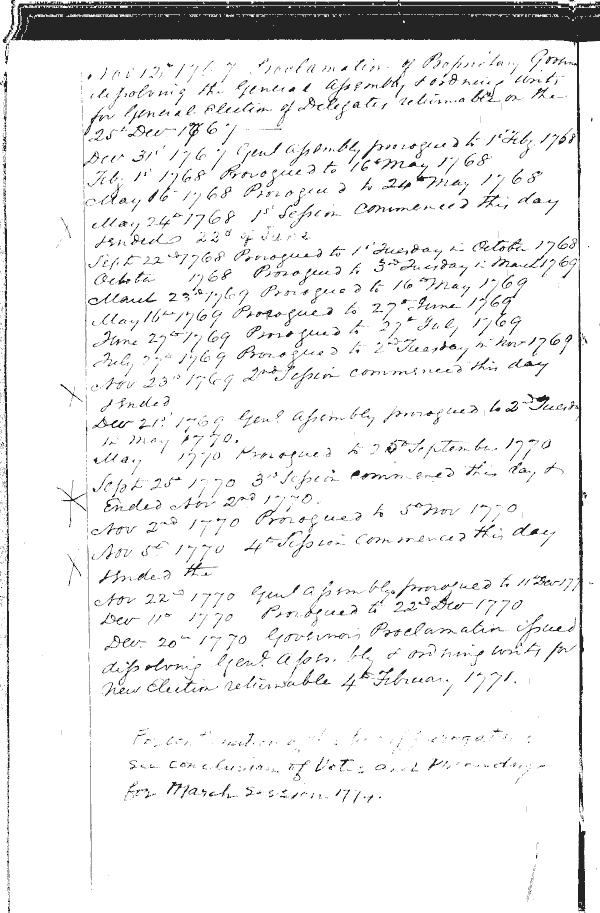 Nov 12th 1767 Proclamation of Proprietary Govern
dissolving the General Assembly & ordering Writs
for General Election of Delegates returnable on the
25th Decr 1767
Decr 31st 1767 Genl Assembly prorogued to 1st Feby 1768
Feby 1st 1768 Prorogued to 16th May 1768
May 16th 1768 Prorogued to 24th May 1768
May 24th 1768 1st Session commenced this day
& ended 22d of June
Sept 22nd 1768 Prorogued to 1st Tuesday in October 1768
October 1768 Prorogued to 3rd Tuesday in March 1769
March 23rd 1769 Prorogued to 16th May 1769
May 16th 1769 Prorogued to 27th June 1769
June 27th 1769 Prorogued to 27th July 1769
July 27th 1769 Prorogued to 2nd Tuesday in Nov 1769
Nov 23rd 1769 2nd Session commenced this day
& ended
Decr 21st 1769 Genl Assembly prorogued to 2nd Tuesday
in May 1770.
May 1770 Prorogued to 25th September 1770
Sept 25th 1770 3rd Session commenced this day &
Ended Nov 2nd 1770.
Nov 2nd 1770 Prorogued to 5th Nov 1770
Nov 5th 1770 4th Session commenced this day
& ended the
Nov 22nd 1770 Genl Assembly prorogued to 11th Decr 177
Decr 11th 1770 Prorogued to 22nd Decr 1770
Decr 20th 1770 Governor's Proclamation issued
dissolving Genl Assembly & ordering writs for
New Election returnable 4th February 1771.
For
see conclusion of Votes and Proceedings
for March Session 1774.